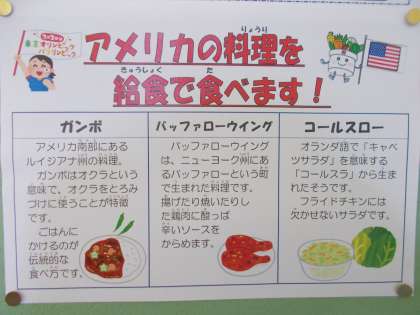 めざせ!!
東京オリンピック
パラリンピック
アメリカの料理を
りょうり
給食で食べます！
きゅうしょく た
ガンボ
アメリカ南部にある
ルイジアナ州の料理。
ガンボはオクラという
意味で、オクラをとろみ
づけに使うことが特徴
です。
ごはんに
かけるのが
伝統的な
食べ方です。
バッファローウイング
バッファローウイング
は、ニューヨーク州にあ
るバッファローという町
で生まれた料理です。
揚げたり焼いたりし
た鶏肉に酸っぱ
辛いソースを
からめます。
コールスロー
オランダ語で「キャベ
ツサラダ」を意味する
「コールスラ」から生ま
れたそうです。
フライドチキンには
欠かせないサラダです。